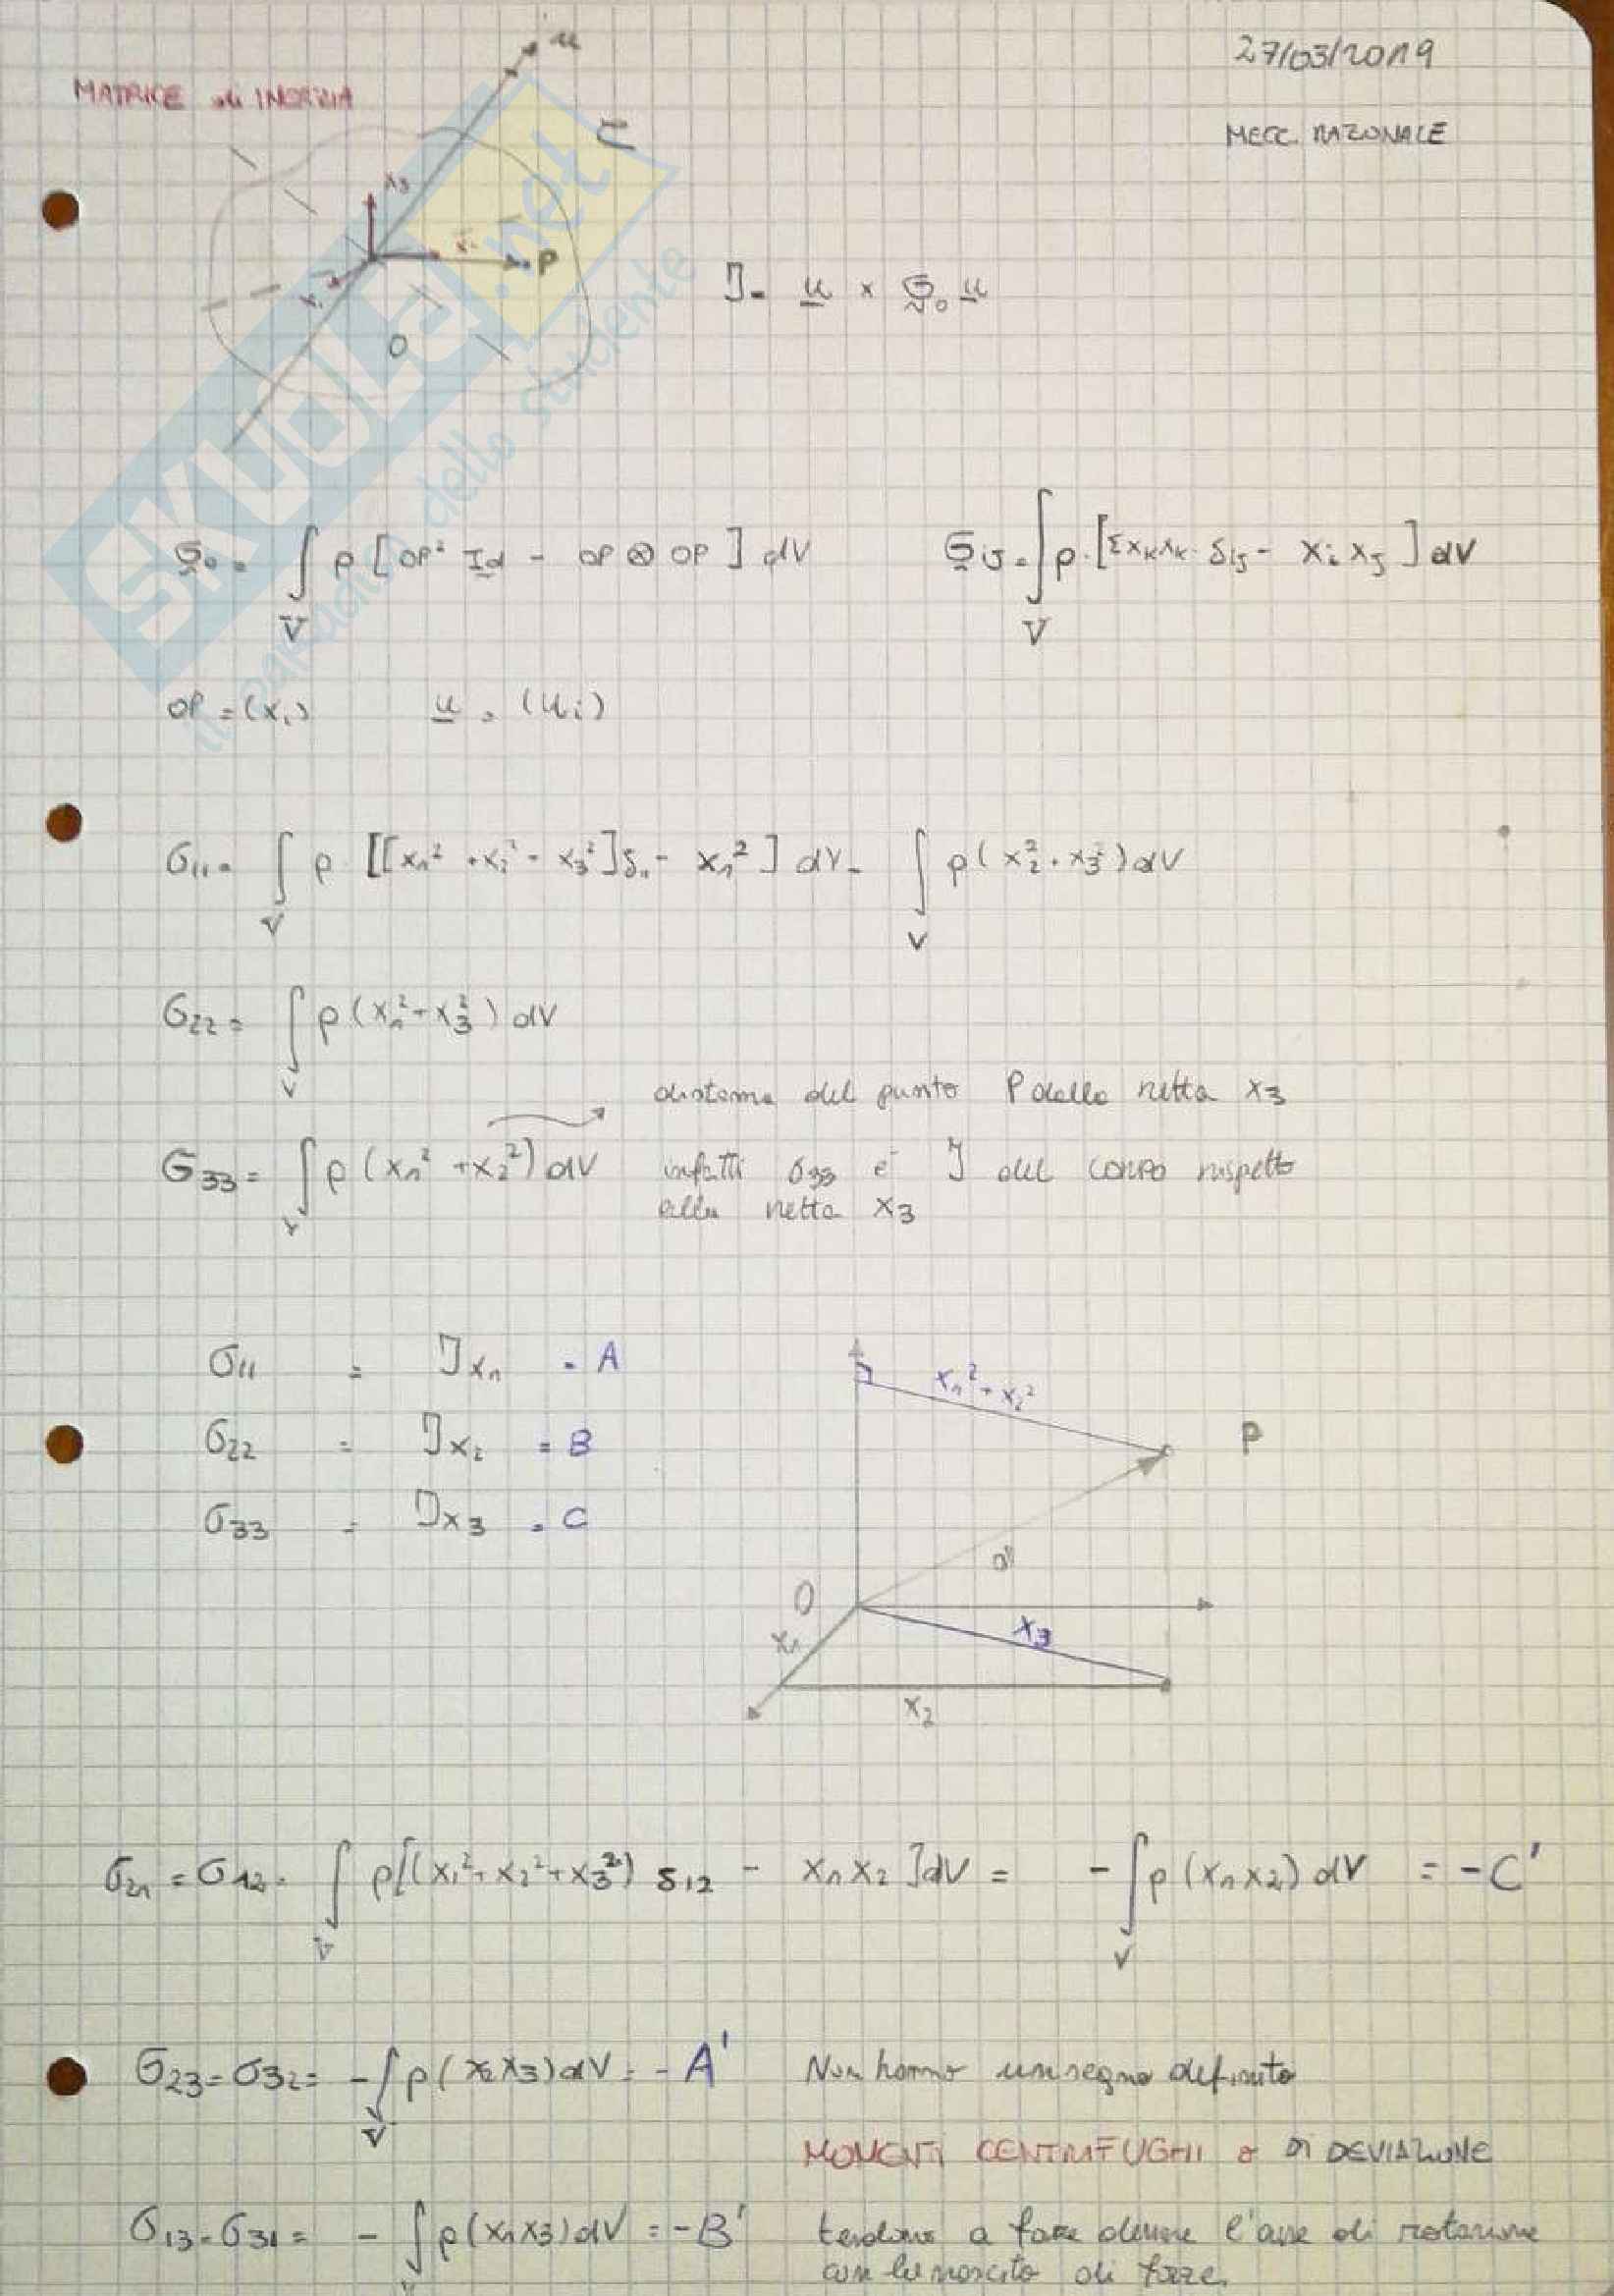 27/03/2019
MATRICE di INERZIA
MECC. RAZIONALE
u
τ
x3
P
x1
O
J = u × σo u
SKUOLA.net
il paradiso dello studente
σo = ∫V ρ [OP² Id - OP ⊗ OP] dV
σij = ∫V ρ · [Σ xk xk · δij - xi xj] dV
OP = (xi) u = (ui)
σ11 = ∫V ρ [[x1² + x2² + x3²] δ11 - x1²] dV = ∫V ρ (x2² + x3²) dV
σ22 = ∫V ρ (x1² + x3²) dV
distanza del punto P dalla retta x3
σ33 = ∫V ρ (x1² + x2²) dV infatti σ33 è J del corpo rispetto
alla retta x3
σ11 = Jx1 = A
σ22 = Jx2 = B
σ33 = Jx3 = C
x1² + x2²
P
OP
O
x3
x1
x2
σ21 = σ12 = ∫V ρ [(x1² + x2² + x3²) δ12 - x1 x2] dV = -∫V ρ (x1 x2) dV = -C'
σ23 = σ32 = -∫V ρ (x2 x3) dV = -A' Non hanno un segno definito
MOMENTI CENTRIFUGHI o DI DEVIAZIONE
σ13 = σ31 = -∫ ρ (x1 x3) dV = -B' tendono a fare deviare l'asse di rotazione
con la nascita di forze.